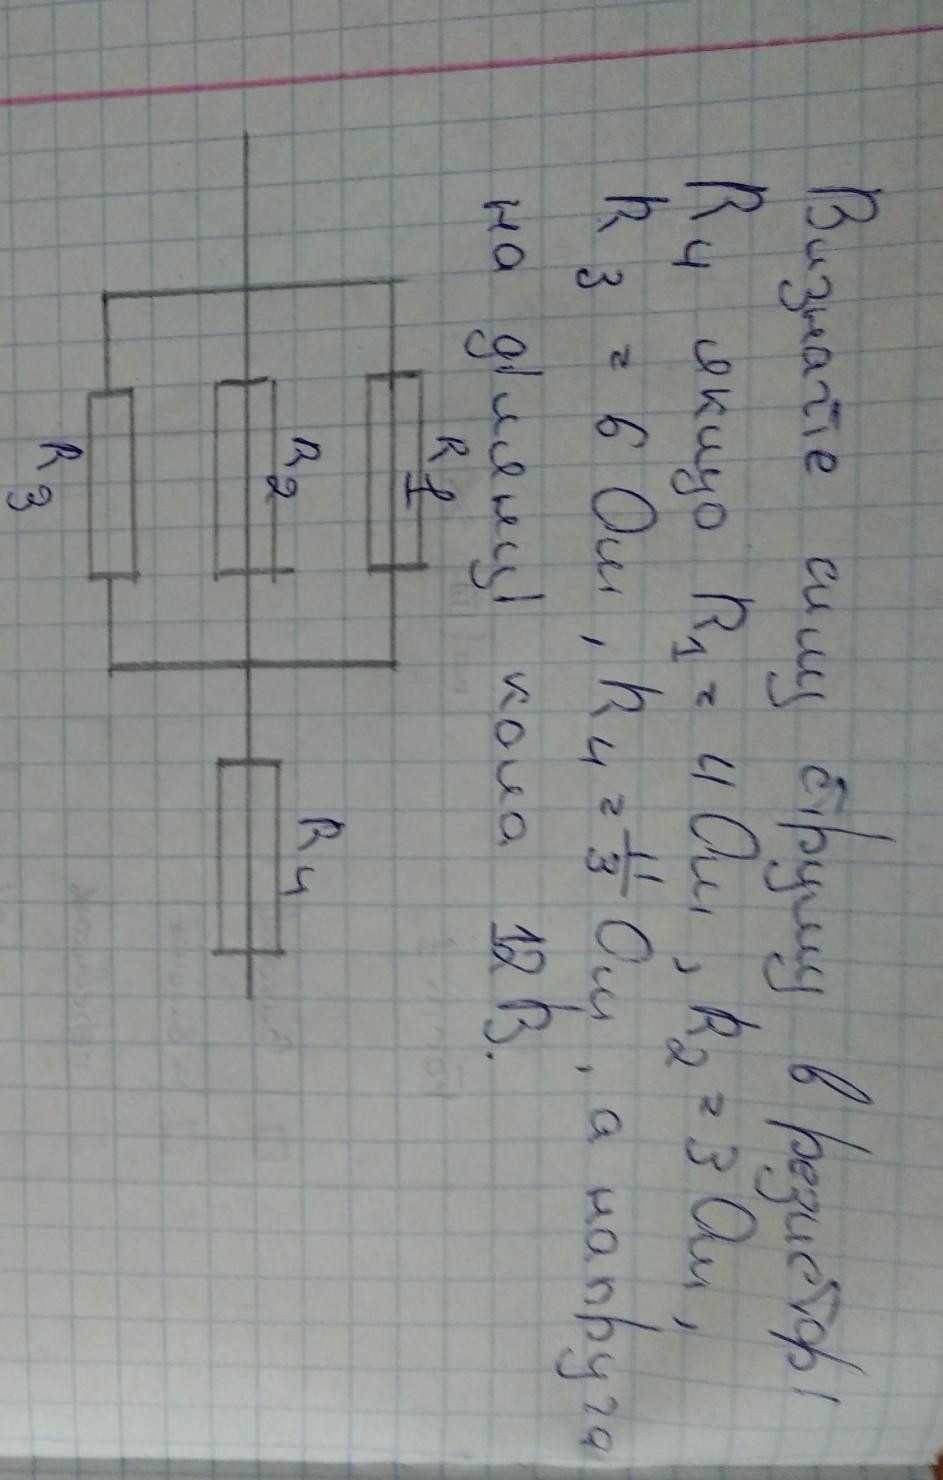 Визначте силу струму в резисторі
R4 якщо R1 = 4 Ом, R2 = 3 Ом,
R3 = 6 Ом, R4 = 11/3 Ом, а напруга
на ділянці кола 12 В.
R1
R2
R3
R4